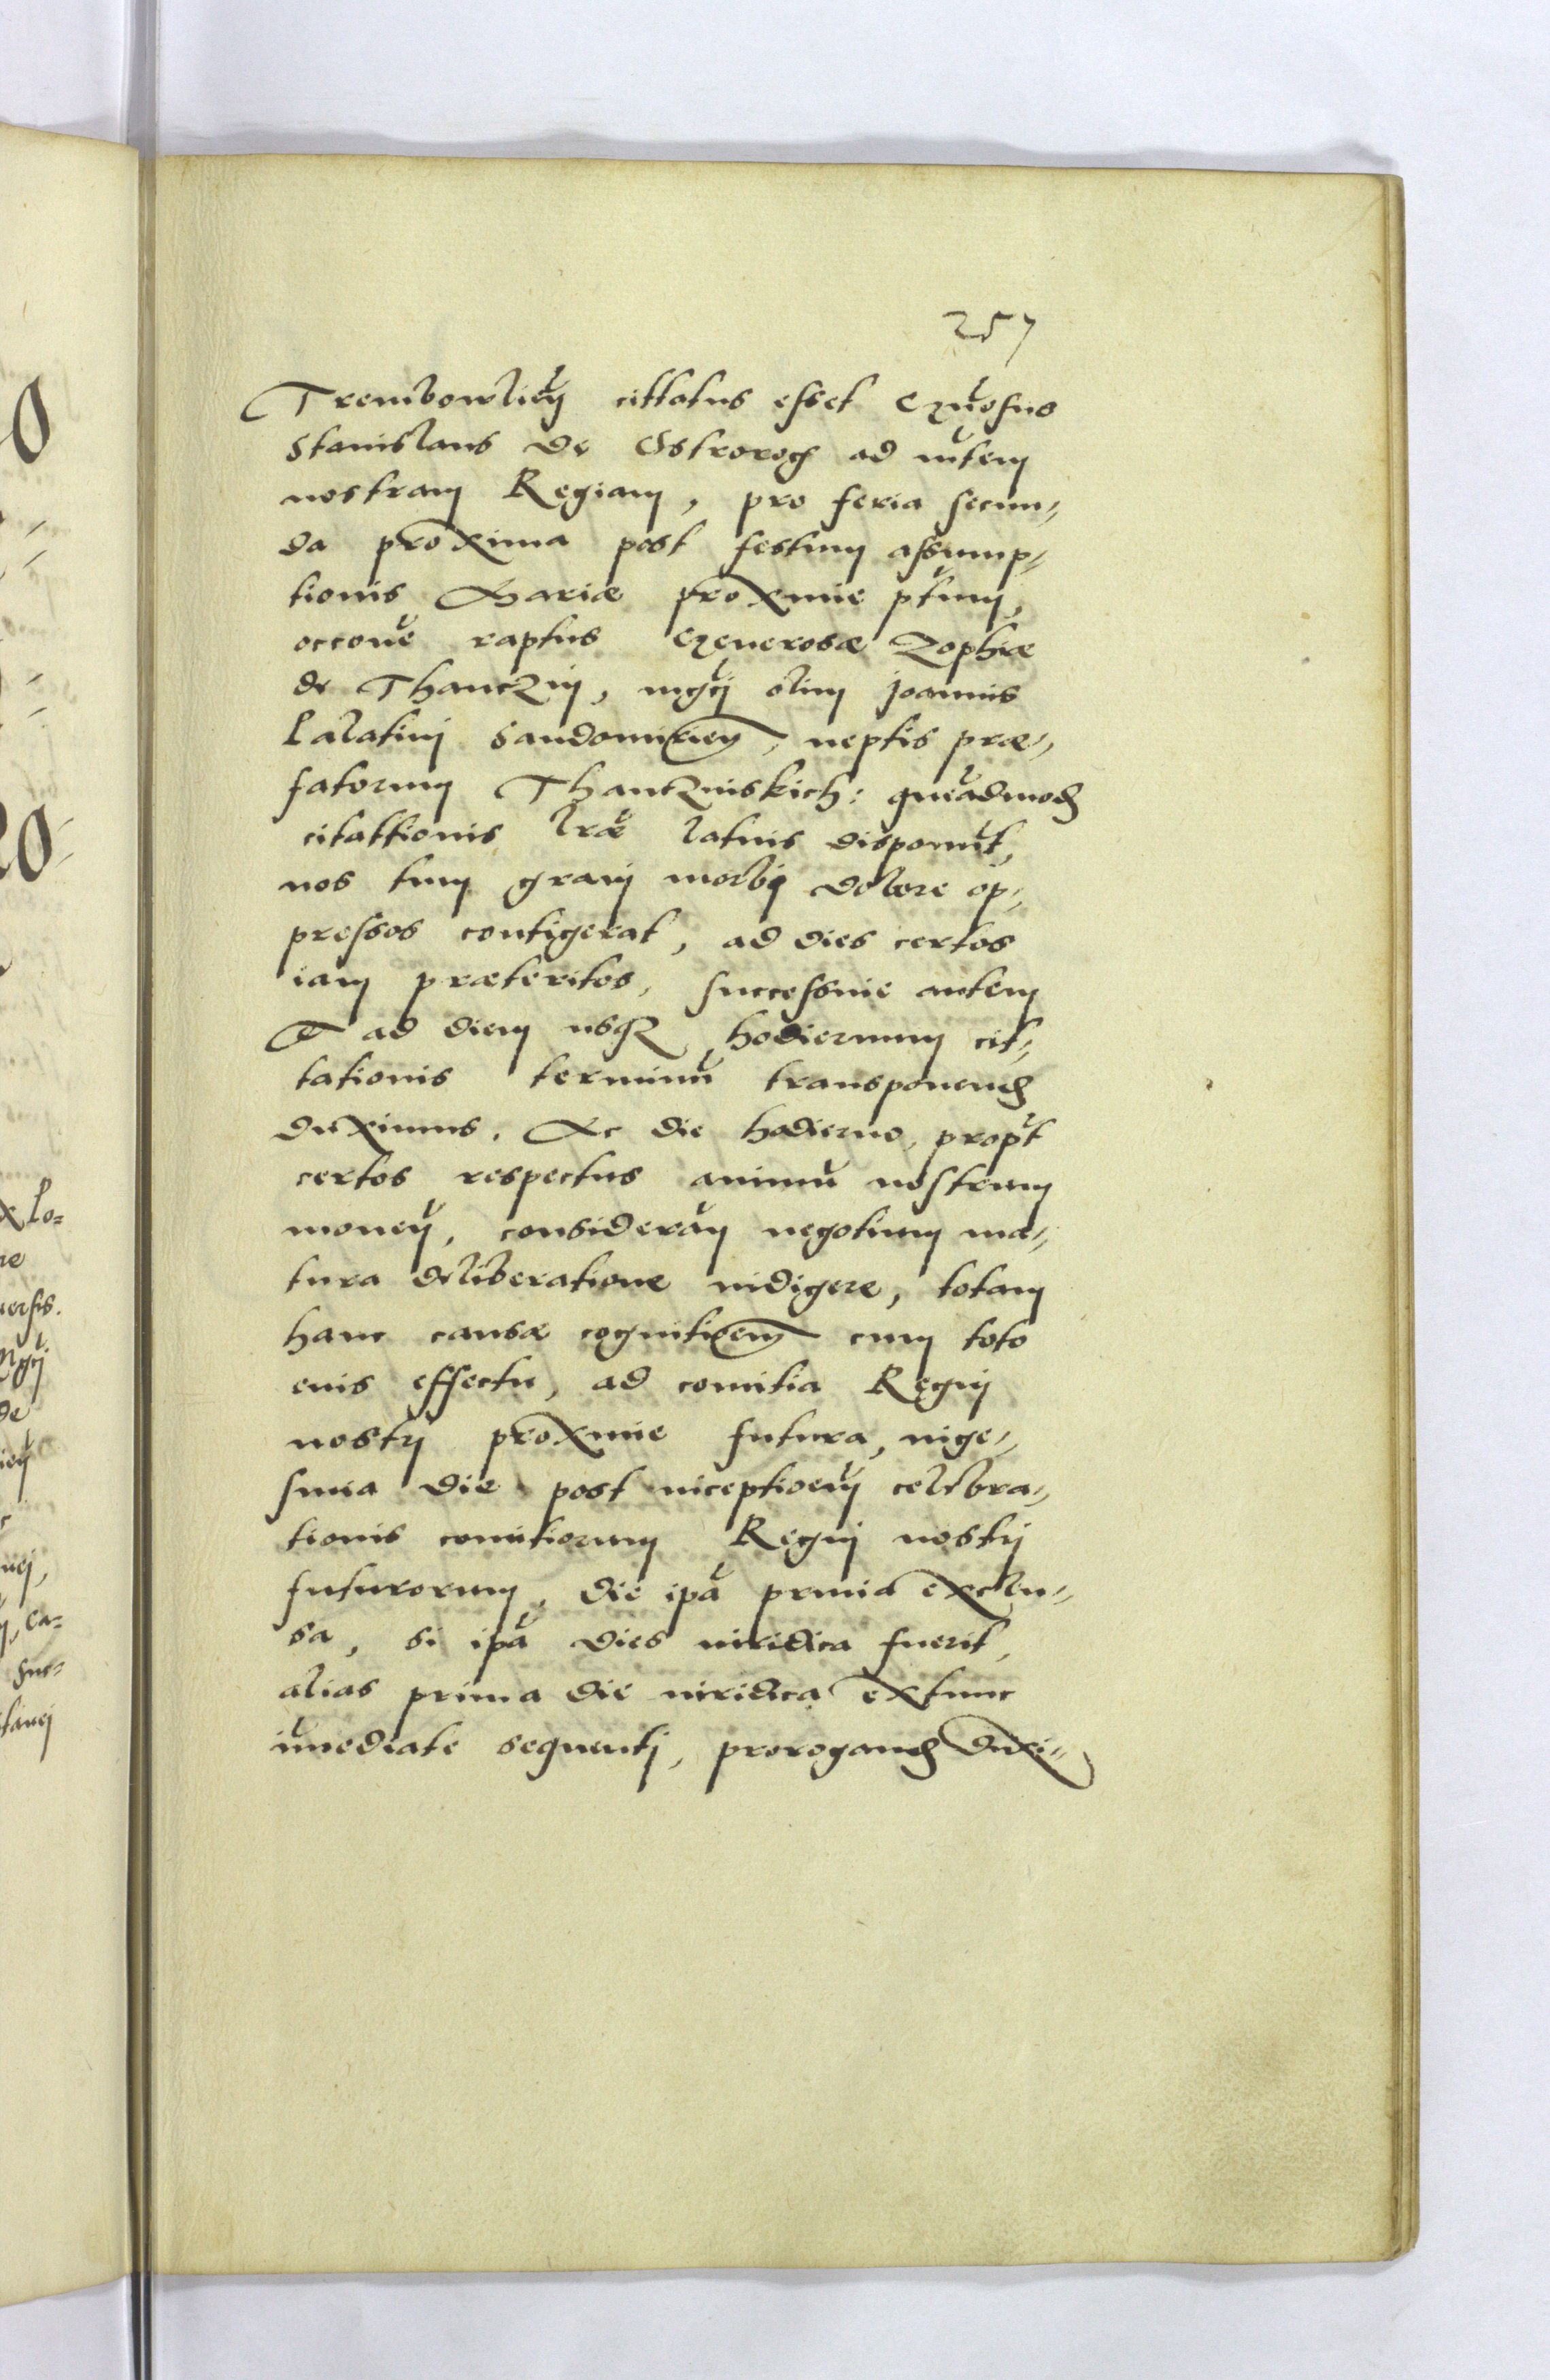 257
Trembowlieñ cittatus esset Gñosus
Stanislaus de Ostrorog ad mtem
nostram Regiam, pro feria secun=
da proxima post festum assump=
tionis Mariæ proxime ptum,
occone raptus Generosæ Zophiæ
de Thanczin, mgci olim Joannis
Palatini Sandomirien, neptis præ=
fatorum Thanczinskich: queadmod
citattionis lræ latius disponut,
nos tum gravi morbi dolore op=
pressos contigerat, ad dies certos
iam præteritos, successive autem
Et ad diem usqz hodiernum cit=
tationis terminu transponend
duximus. Ac die hodierno, propt
certos respectus animu nostrum
moven, consideran negotium ma=
tura deliberatione indigere, totam
hanc causæ cognitioem cum toto
eius effectu, ad comitia Regni
nostri proxime futura, vige=
sima die post inceptioem celebra=
tionis comitiorum Regni nostri
futurorum, die ipa prima exclu=
sa, si ipa dies iuridica fuerit,
alias prima die iuridica extunc
imediate sequenti, prorogand duxi=